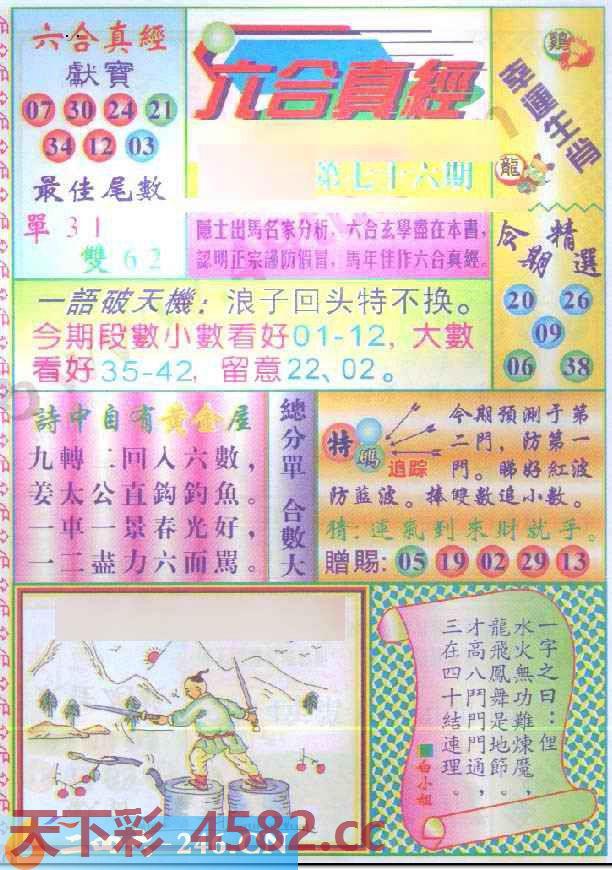 六合真經
獻寶
07 30 24 21
34 12 03
最佳尾數
單 31
雙 62
六合真經
第七十六期
隱士出馬名家分析，六合玄學盡在本書，
認明正宗謹防假冒，馬年佳作六合真經。
鷄
幸運生肖
龍
今期精選
20 26
09
06 38
一語破天機：浪子回头特不换。
今期段數小數看好01-12，大數
看好35-42，留意22、02。
詩中自有黃金屋
九轉二回入六數，
姜太公直鈎釣魚。
一車一景春光好，
一二盡力六面罵。
總分單 合數大
特碼
追踪
今期預測于第
二門，防第一
門。睇好紅波
防藍波。捧雙數追小數。
猜：運氣到來財就手。
贈賜：05 19 02 29 13
一字之曰：俚
水火無功難煉魔，
龍飛鳳舞是地節。
才高八門門門通，
三在四十結連理。
白小姐
天下彩 4582.cc
246.CN